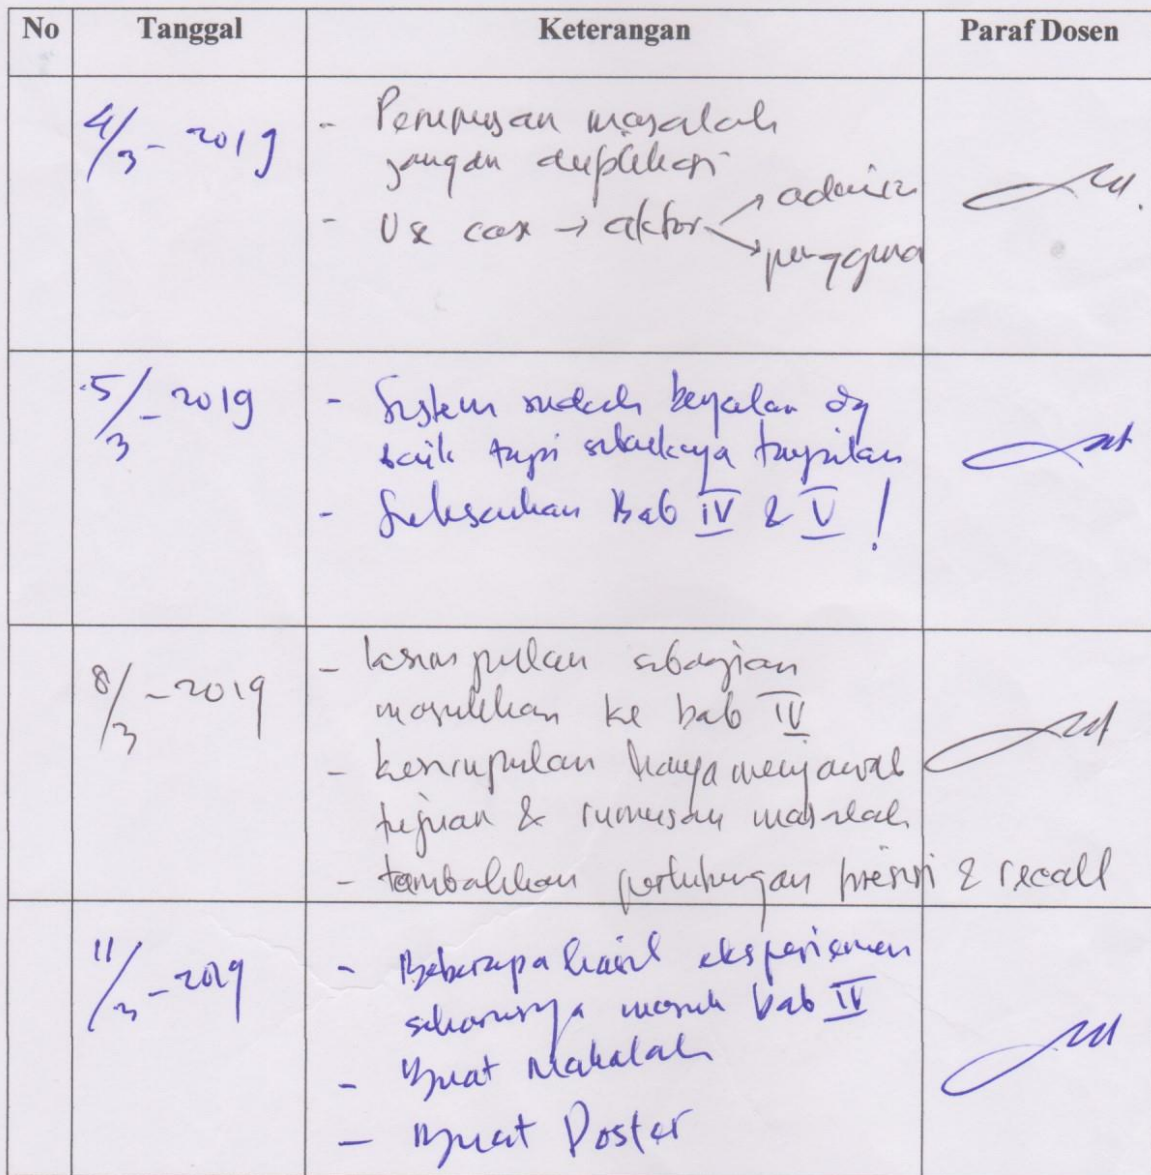 No Tanggal Keterangan Paraf Dosen
4/3 - 2019
- Perumusan masalah
jangan duplikasi
- Use case → aktor → admin
→ pengguna
5/3 - 2019
- Sistem sudah berjalan dg
baik tapi sebaiknya tampilan
- Selesaikan Bab IV & V !
8/3 - 2019
- kesimpulan sebagian
masukkan ke bab IV
- kesimpulan hanya menjawab
tujuan & rumusan masalah
- tambahkan perhitungan presisi & recall
11/3 - 2019
- Beberapa hasil eksperimen
seharusnya masuk bab IV
- Buat Makalah
- Buat Poster